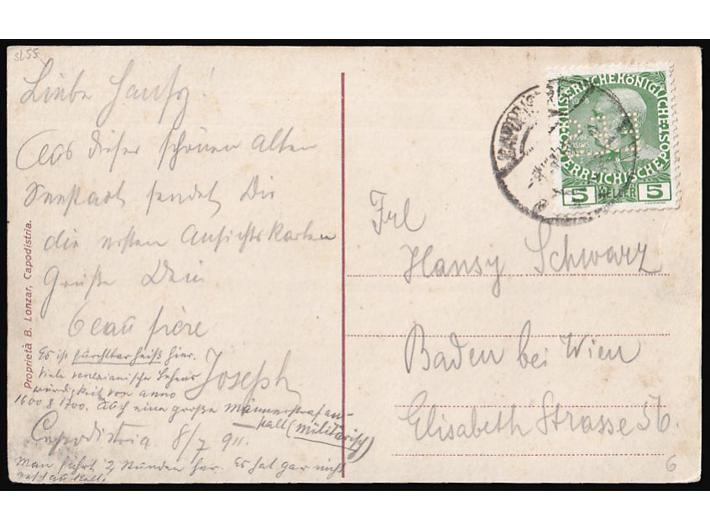 Liebe Hansy!
Aus dieser schönen Alten
Seestadt sendet Dir
die ersten Ansichtskarten
Grüße Dein
beau frère
Joseph
Es ist furchtbar heiß hier.
Viele venezianische Sehens
würdigkeit von anno
1600 & 1700. Auch eine große Männerstrafan-
stalt (militärisch)
Capodistria 8/7 911.
Man fährt 2 Stunden her. Es hat gar nicht
Proprietà B. Lonzar, Capodistria.
KAISERLICHEKÖNIGLICHE
ÖSTERREICHISCHE POST
5 HELLER 5
CAPODIS
Frl
Hansy Schwarz
Baden bei Wien
Elisabeth Strasse 56.
6